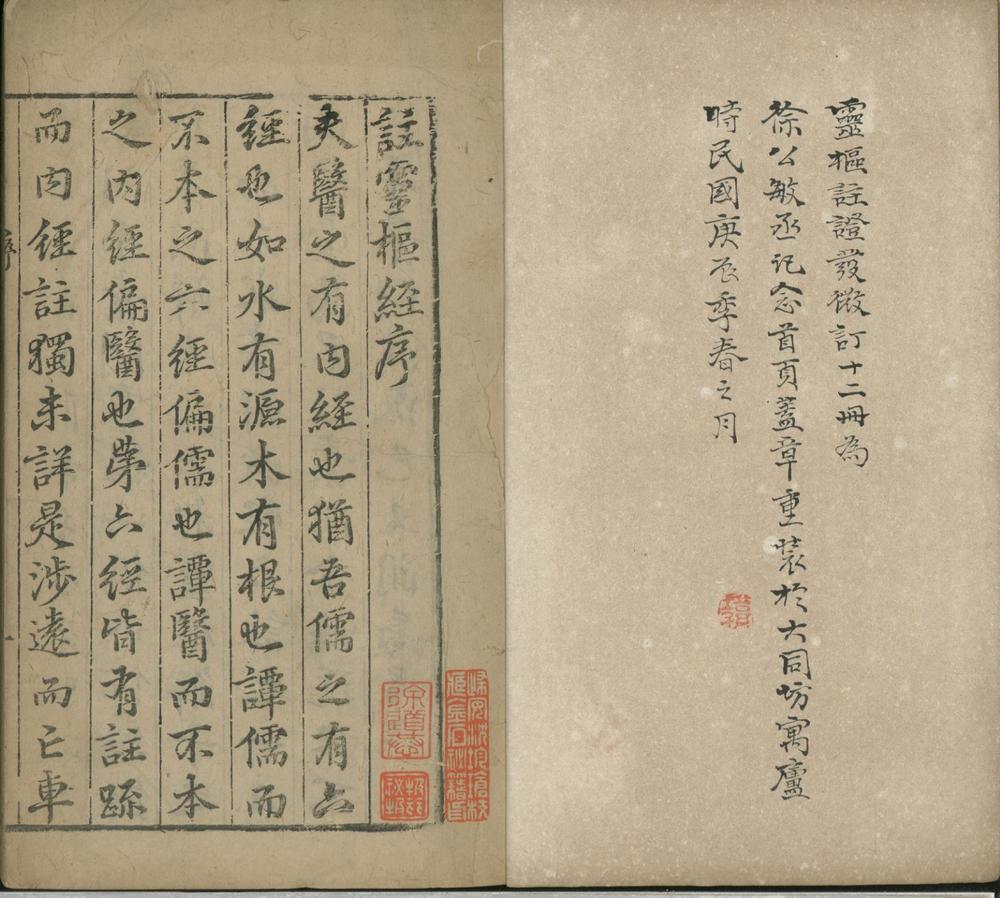 靈樞註證發微訂十二冊為
徐公敏丞記念首頁蓋章重裝於大同坊寓廬
時民國庚辰季春之月
註靈樞經序
夫醫之有内經也猶吾儒之有六
經也如水有源木有根也譚儒而
不本之六經偏儒也譚醫而不本
之内經偏醫也苐六經皆有註疏
而内經註獨未詳是涉遠而亡車
序
一
徐道誌